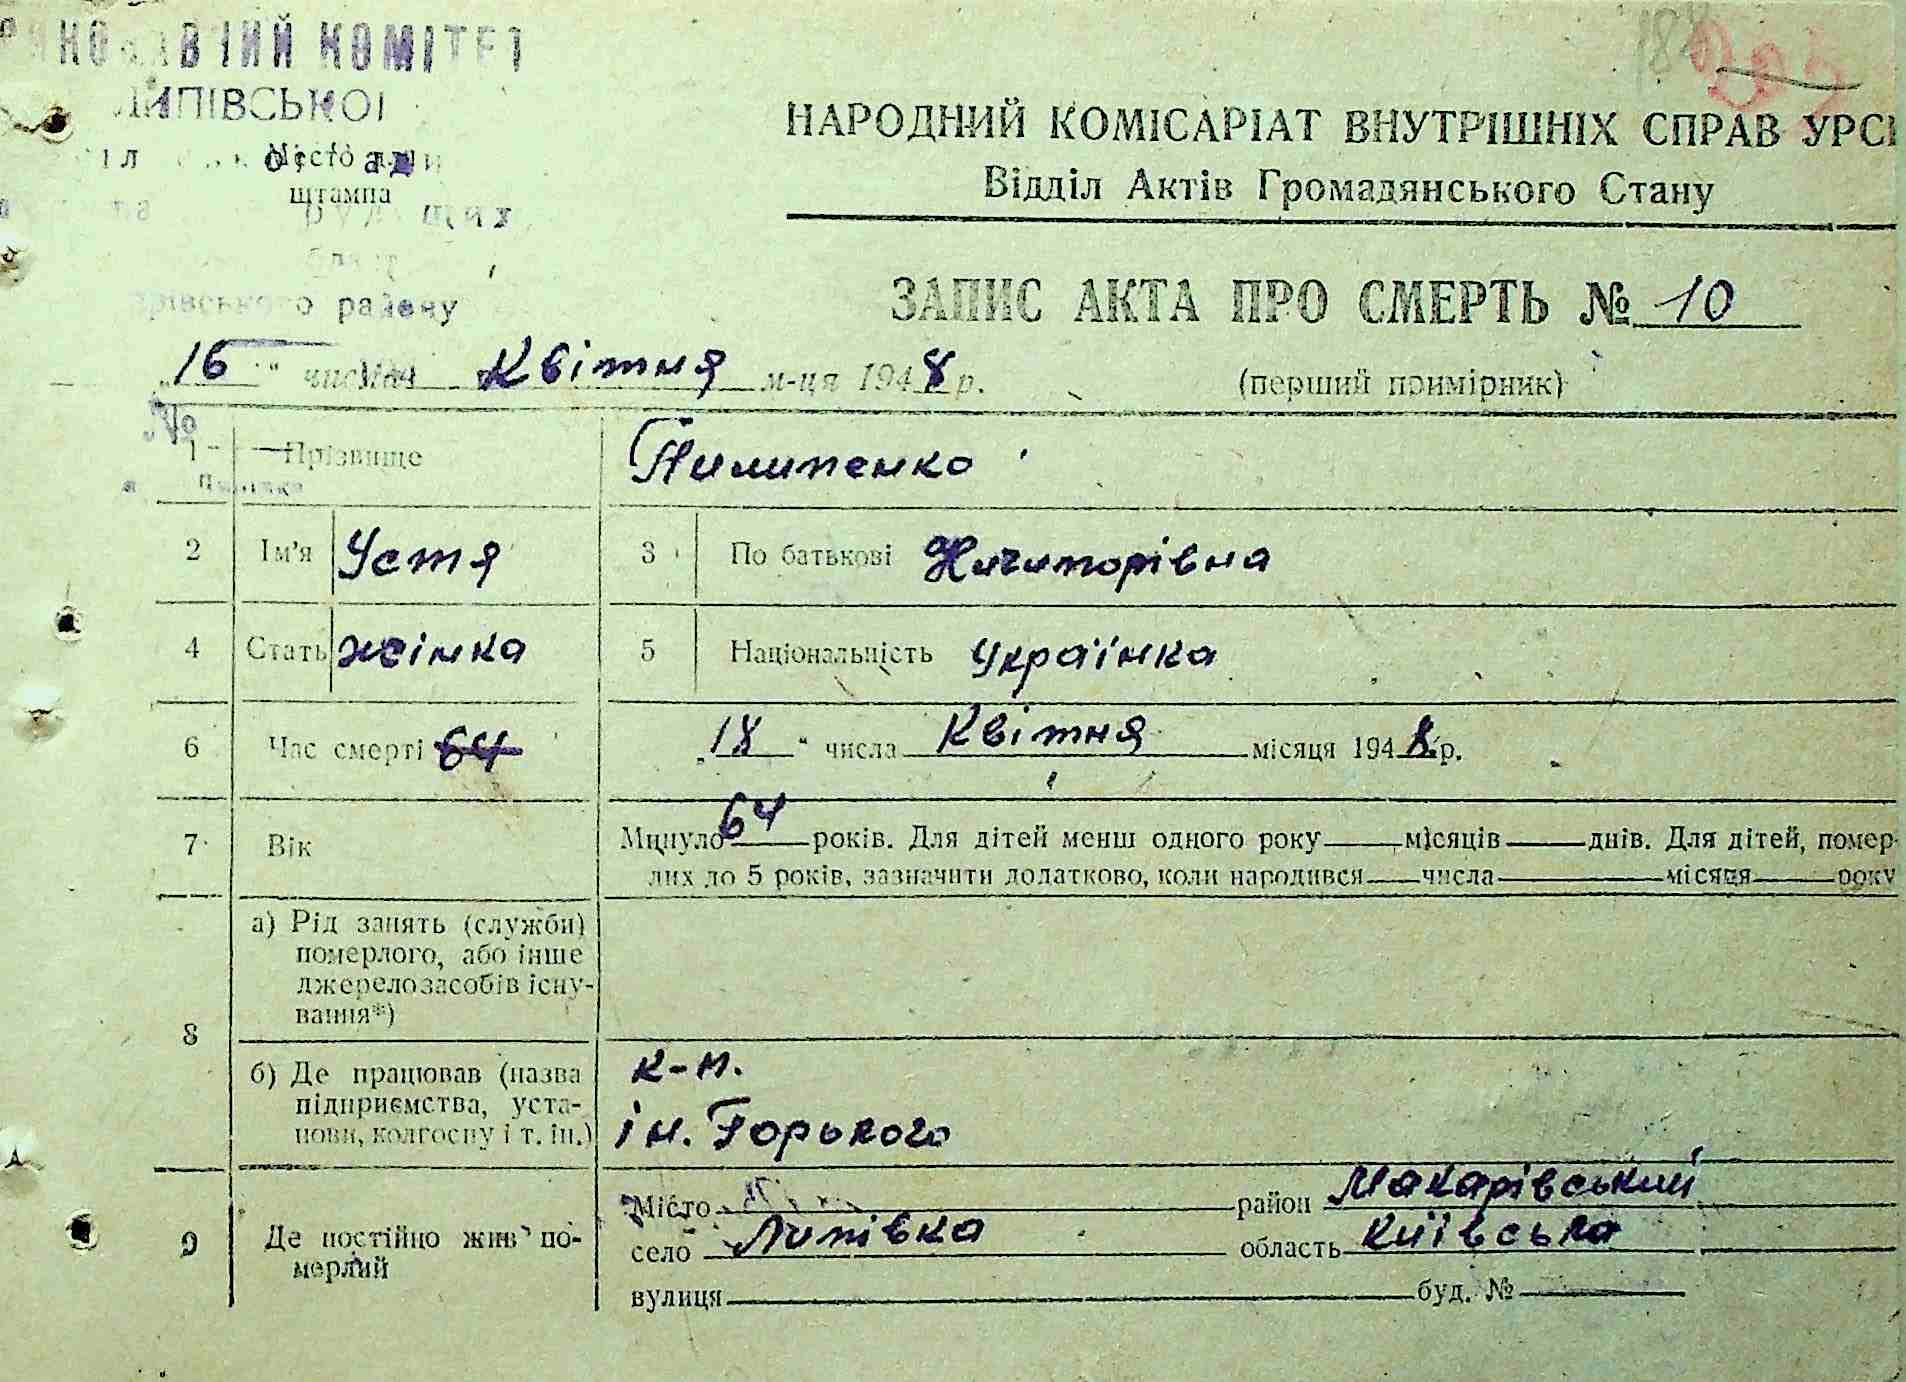 КОМІТЕТ
ЛИПІВСЬКОЇ
Місто для
штампа
району
НАРОДНИЙ КОМІСАРІАТ ВНУТРІШНІХ СПРАВ УРСР
Відділ Актів Громадянського Стану
ЗАПИС АКТА ПРО СМЕРТЬ № 10
„16“ числа Квітня м-ця 1948 р.
(перший примірник)
№
1 Прізвище Пилипенко
2 Ім'я Устя 3 По батькові Ничипорівна
4 Стать жінка 5 Національність Українка
6 Час смерті 64 „18“ числа Квітня місяця 1948 р.
7 Вік Минуло 64 років. Для дітей менш одного року місяців днів. Для дітей, помер-
лих до 5 років, зазначити додатково, коли народився числа місяця року
8 а) Рід занять (служби)
померлого, або інше
джерело засобів існу-
вання*)
б) Де працював (назва
підприємства, уста-
нови, колгоспу і т. ін.)
к-п.
ім. Горького
9 Де постійно жив по-
мерлий
Місто район Макарівський
село Липівка область Київська
вулиця буд. №